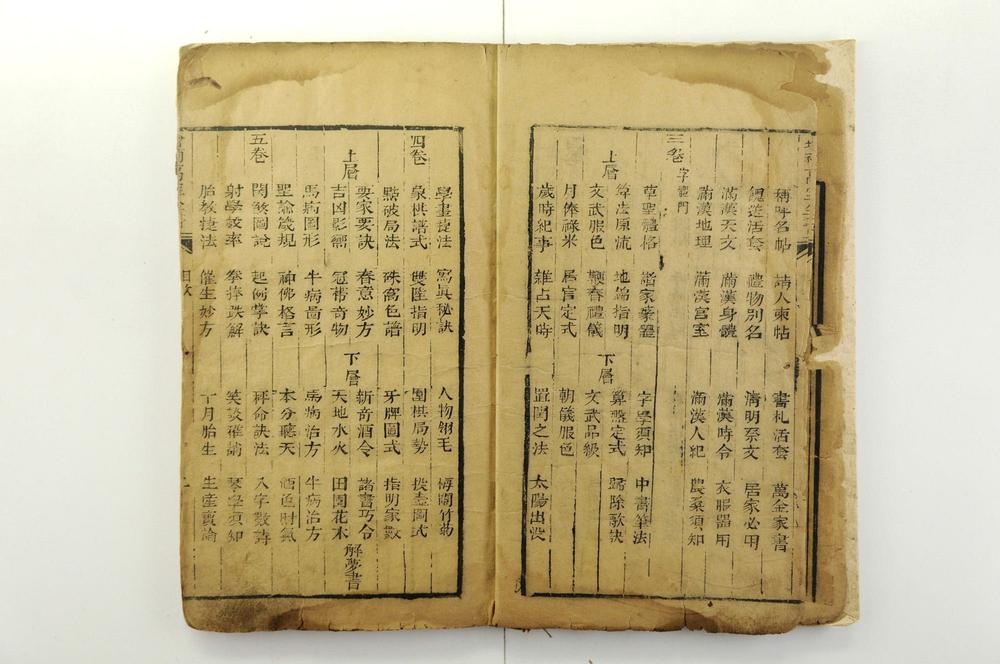 稱呼名帖 請人柬帖 書札活套 萬金家書
餽送活套 禮物別名 清明祭文 居家必用
滿漢天文 滿漢身體 滿漢時令 衣服器用
滿漢地理 滿漢宮室 滿漢人紀 農桑須知
三卷
草聖體格 諸家篆體 字學須知 中書筆法
上層 下層
算法原流 地輪指明 算盤定式 歸除歌訣
文武服色 鞭春禮儀 文武品級
月俸祿米 居官定式 朝儀服色
歲時紀事 雜占天時 置閏之法 太陽出没
四卷
學畫捷法 寫真秘訣 人物翎毛 梅蘭竹菊
象棋譜式 雙陸指明 圍棋局勢 投壺圖式
點破局法 珠窩色譜 牙牌圖式 指明家數
上層 下層
要家要訣 春意妙方 新奇酒令 諸書巧令
吉凶影響 冠帶奇物 天地水火 田園花木 解夢書
馬病圖形 牛病啚形 馬病治方 牛病治方
聖諭箴規 神佛格言 本分聽天 酒色財氣
五卷
起例掌訣 秤命訣法 八字數詩
射學 拳捧跌解 笑談 琴學須知
胎教捷法 催生妙方 十月胎生 生產論
目次